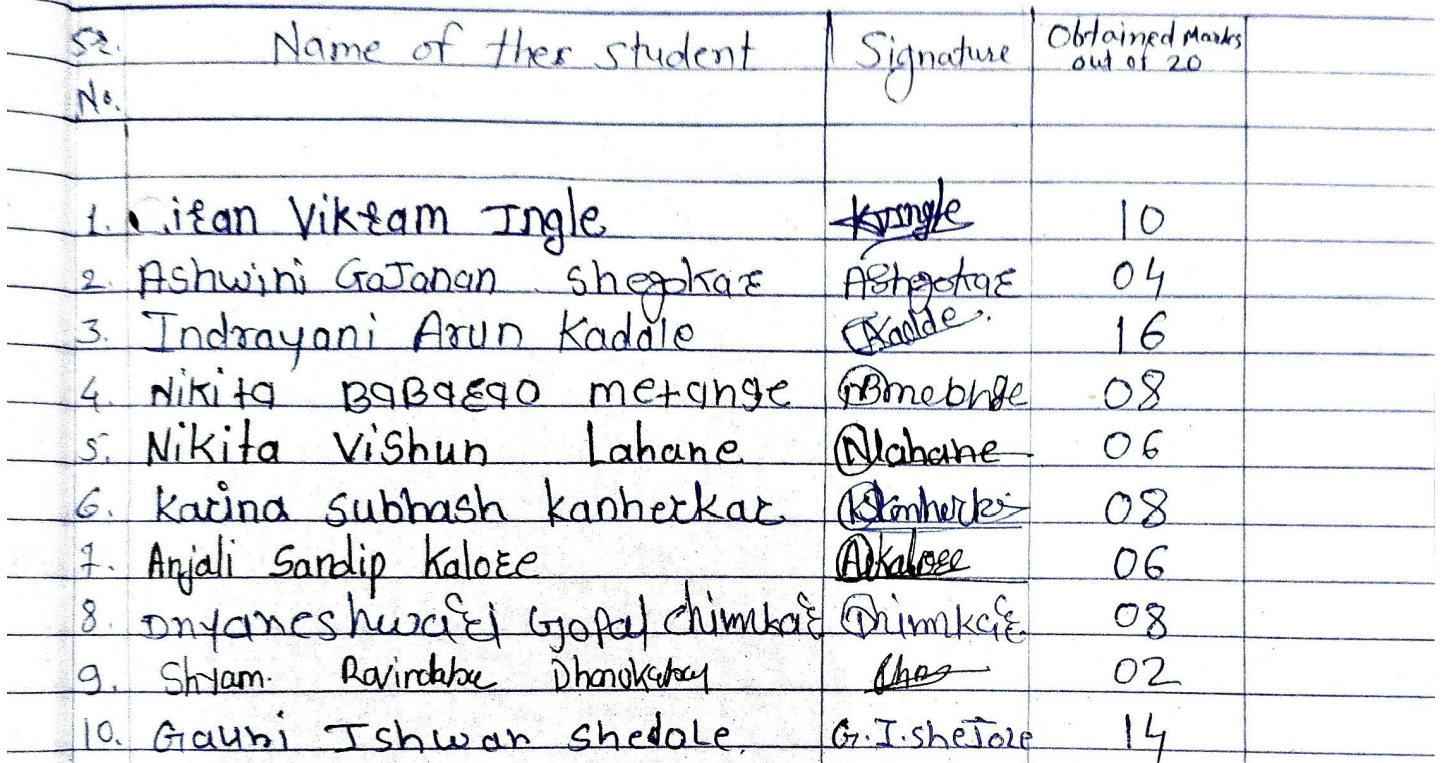 Sr. No. Name of ther student Signature Obtained Marks out of 20
1. Vikram Ingle 10
2. Ashwini GaJanan shegokar AShegokar 04
3. Indrayani Arun Kaddle Kaalde. 16
4. Nikita BaBarao metange 08
5. Nikita Vishun Lahane Nlahane 06
6. Karina subhash kanherkar 08
7. Anjali Sandip Kalore AKalore 06
8. Dnyaneshwari Gopal chimkar 08
9. Shyam. 02
10. Gauri Ishwar shedole. G.I.sheJole 14